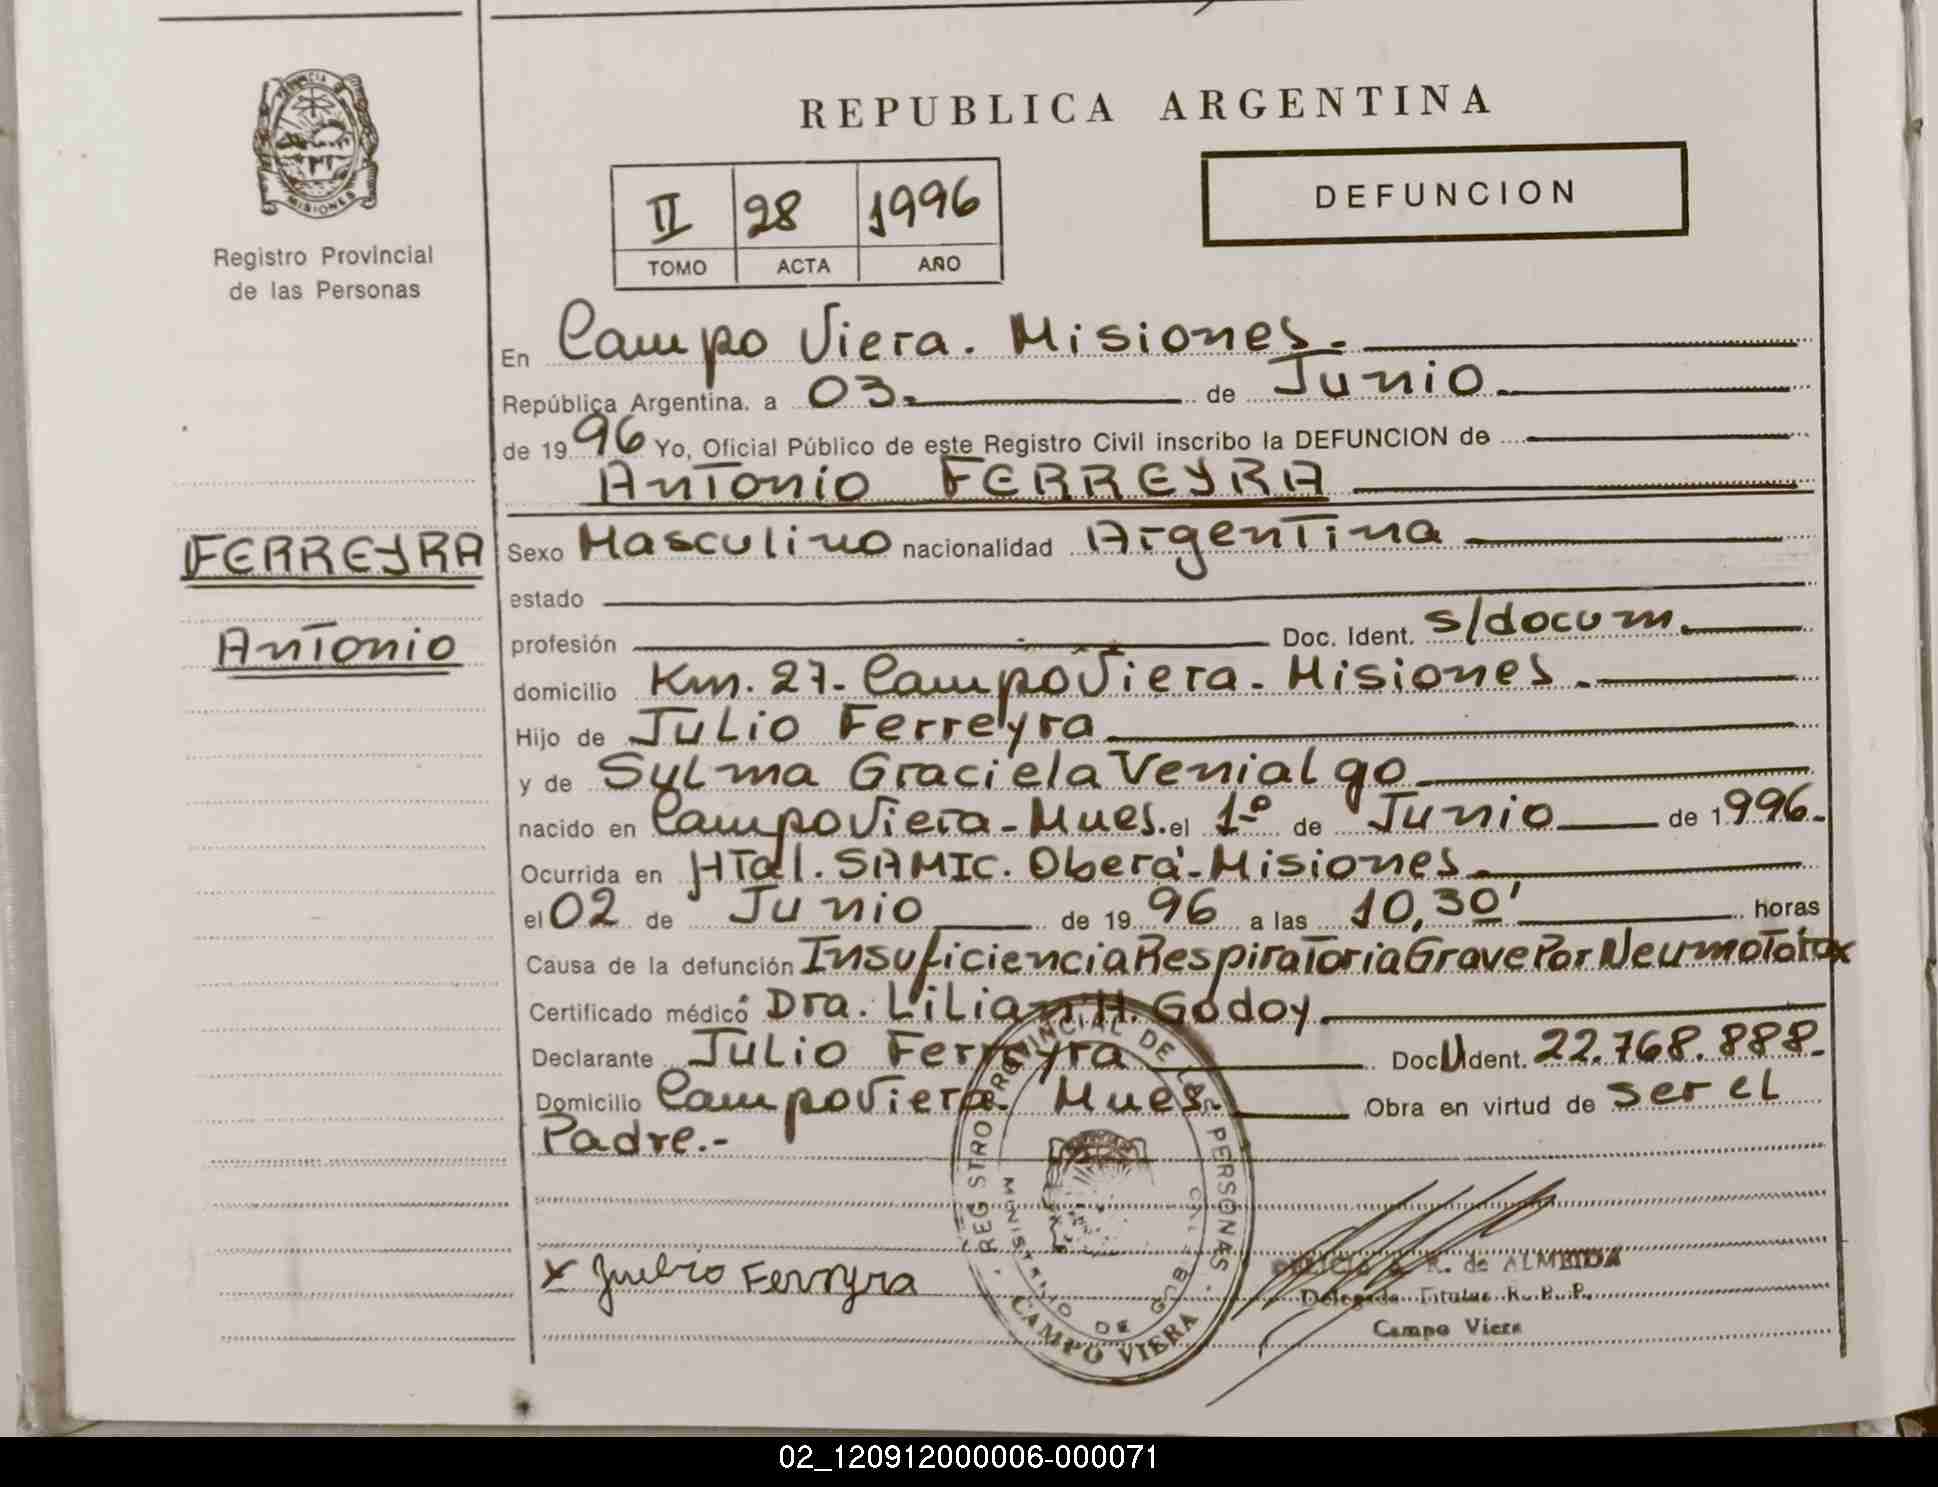 PROVINCIA
MISIONES
Registro Provincial
de las Personas
REPUBLICA ARGENTINA
II 28 1996
TOMO ACTA AÑO
DEFUNCION
En Campo Viera. Misiones.
República Argentina, a 03. de Junio
de 1996 Yo, Oficial Público de este Registro Civil inscribo la DEFUNCION de
Antonio FERREYRA
FERREYRA
Antonio
Sexo Masculino nacionalidad Argentina
estado
profesión Doc. Ident. s/docum.
domicilio Km. 27- Campo Viera- Misiones.
Hijo de Julio Ferreyra
y de Sylma Graciela Venialgo
nacido en Campo Viera- Mnes. el 1º de Junio de 1996.
Ocurrida en Htal. SAMIC. Oberá- Misiones
el 02 de Junio de 1996 a las 10,30' horas
Causa de la defunción Insuficiencia Respiratoria Grave Por Neumotorax
Certificado médico Dra. Lilian H. Godoy
Declarante Julio Ferreyra Doc U Ident. 22.768.888.
Domicilio Campo Viera- Mnes. Obra en virtud de ser el
Padre.-
REGISTRO PROVINCIAL DE LAS PERSONAS
MINISTERIO DE GOB
CAMPO VIERA
x Julio Ferreyra
R. de ALMEIDA
Delegada Titular R. P. P.
Campo Viera
02_120912000006-000071